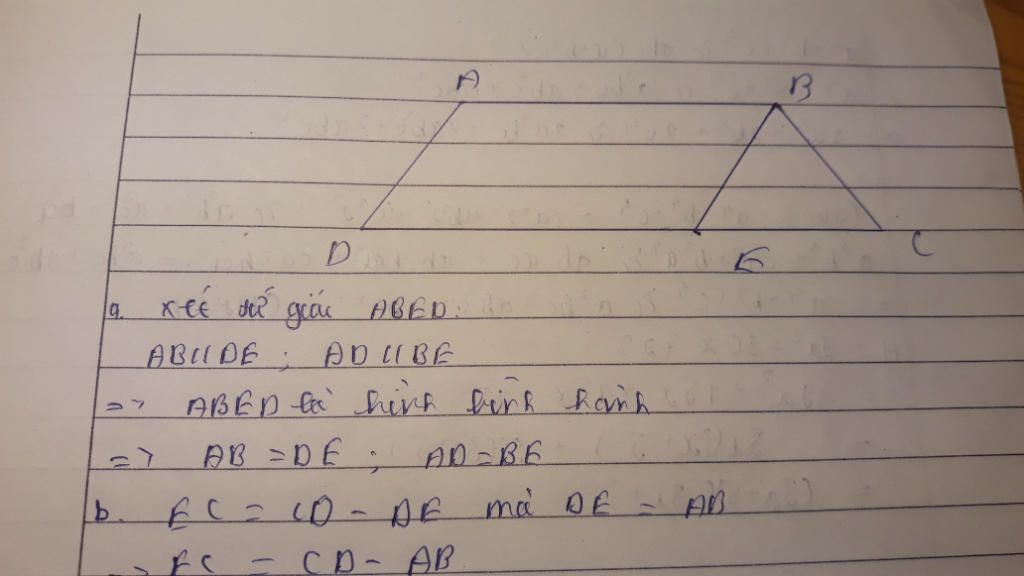 A B
D E C
a. xét tứ giác ABED:
AB // DE ; AD // BE
=> ABED là hình bình hành
=> AB = DE ; AD = BE
b. EC = CD - DE mà DE = AB
=> EC = CD - AB